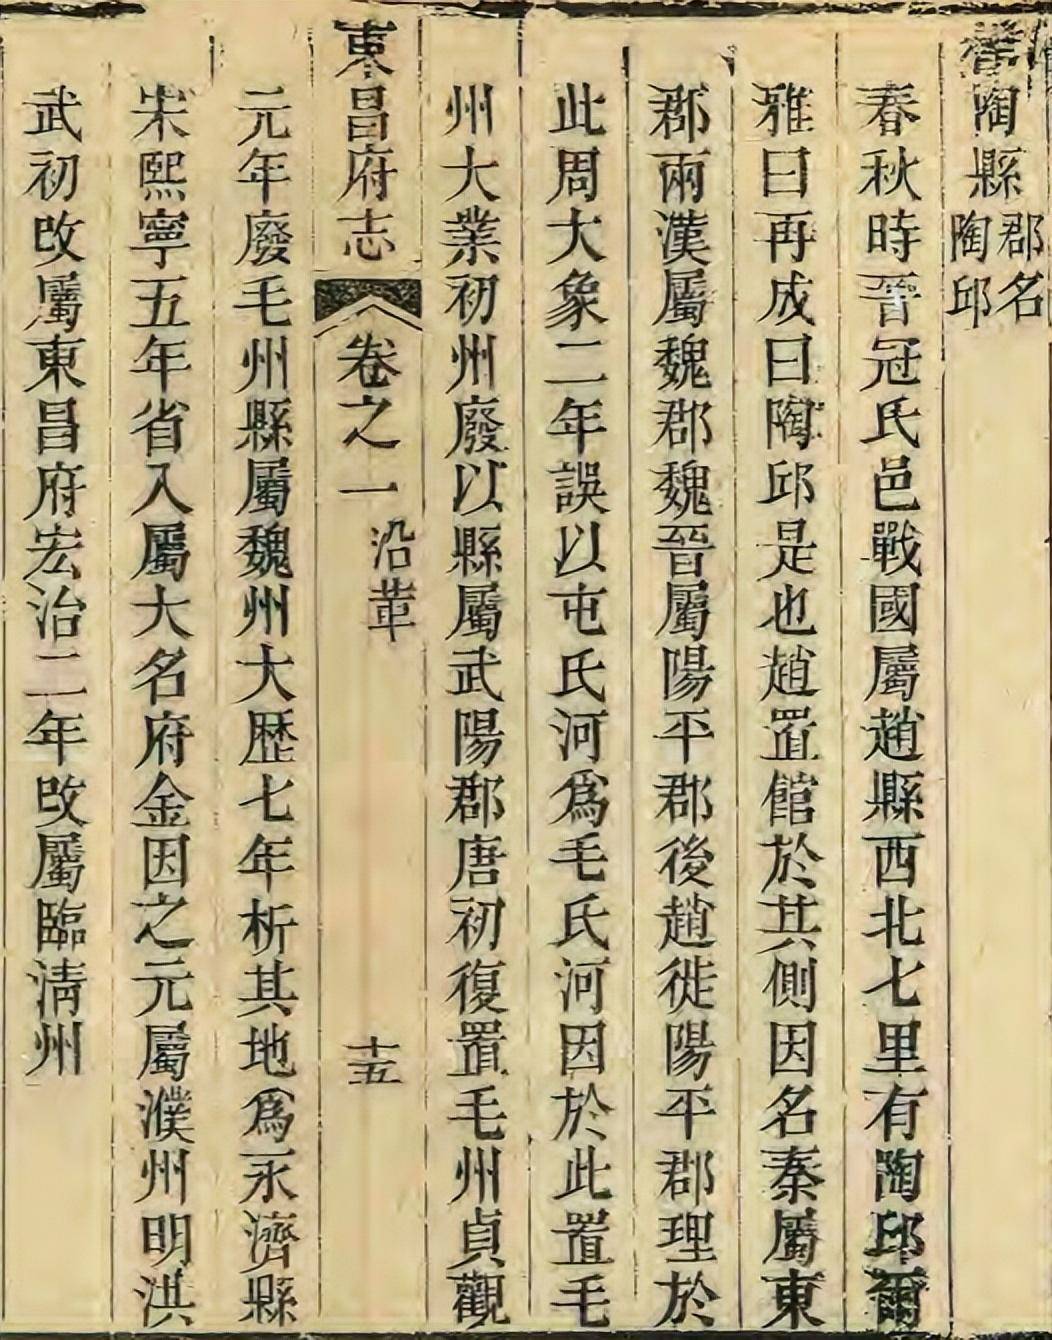 陶縣 郡名陶邱
春秋時晉冠氏邑戰國屬趙縣西北七里有陶邱爾
雅曰再成曰陶邱是也趙置館於其側因名秦屬東
郡兩漢屬魏郡魏晉屬陽平郡後趙徙陽平郡理於
此周大象二年誤以屯氏河爲毛氏河因於此置毛
州大業初州廢以縣屬武陽郡唐初復置毛州貞觀
東昌府志 卷之一 沿革 十五
元年廢毛州縣屬魏州大歷七年析其地爲永濟縣
宋熙寧五年省入屬大名府金因之元屬濮州明洪
武初改屬東昌府宏治二年改屬臨淸州